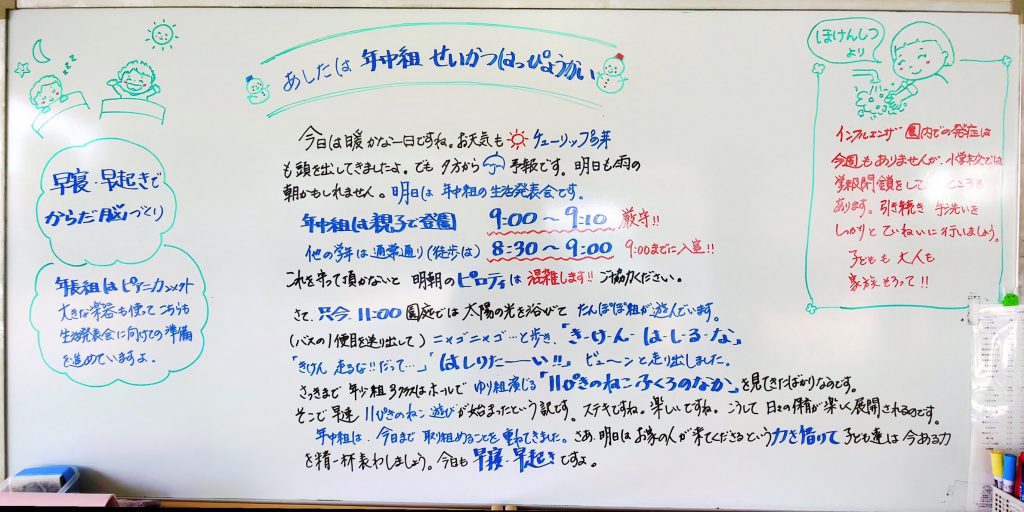 あしたは 年中組 せいかつはっぴょうかい
zzz
早寝・早起きで
からだ・脳づくり
年長組は ピアニカ
大きな楽器も使って こちらも
生活発表会に向けての準備
を進めていますよ。
今日は暖かな一日ですね。お天気も チューリップの芽
も頭を出してきましたよ。でも 夕方から 予報です。明日も雨の
朝かもしれません。明日は 年中組の生活発表会です。
年中組は親子で登園 9:00～9:10 厳守!!
他の学年は通常通り(徒歩は) 8:30～9:00 9:00までに入室!!
これを守って頂かないと 明朝のピロティは 混雑します!! ご協力ください。
さて、只今 11:00 園庭では 太陽の光を浴びて たんぽぽ組が遊んでいます。
(バスの1便目を送り出して) ニャゴニャゴ…と歩き、「きーけんーはーしーるーな」
「きけん 走るな!! だって…」「はしりたーーい!!」 ビューンと走り出しました。
さっきまで 年少組3クラスはホールで ゆり組演じる「11ぴきのねこふくろのなか」を見てきたばかりなのです。
そこで早速 11ぴきのねこ 遊びが始まったという訳です。ステキですね。楽しいですね。こうして 日々の保育が楽しく展開されるのです。
年中組は、今日まで 取り組めることを 重ねてきました。さあ、明日は お家の人が来てくださるという力を借りて 子ども達は 今ある力
を精一杯表わしましょう。今日も 早寝・早起きですよ。
ほけんしつ
より
インフルエンザ 園内での発症は
今週もありませんが、小学校では
学級閉鎖をしているところも
あります。引き続き 手洗いを
しっかりと ていねいに行いましょう。
子どもも 大人も
家族そろって!!